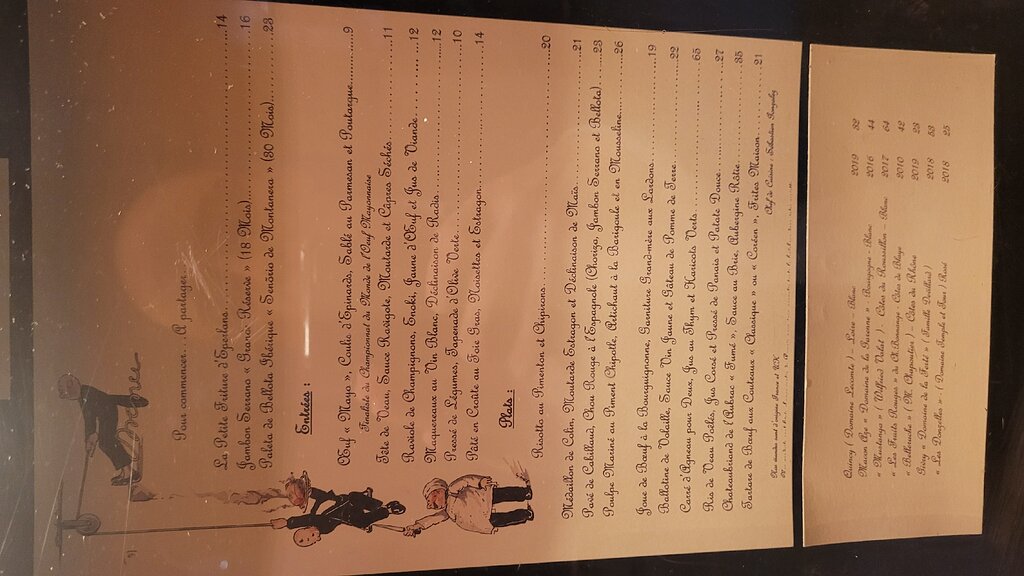 Pour commencer...A partager...
La Petite Friture d'Eperlans 14
Jambon Serrano « Grande Réserve » (18 Mois) 16
Paleta de Bellota Ibérique « Señorio de Montanera » (30 Mois) 23
Entrées :
Œuf « Mayo », Coulis d'Epinards, Sablé au Parmesan et Poutargue 9
Finaliste du Championnat du Monde de l'Œuf Mayonnaise
Tête de Veau, Sauce Ravigote, Moutarde et Câpres Séchés 11
Raviole de Champignons, Enoki, Jaune d'Œuf et Jus de Viande 12
Maquereaux au Vin Blanc, Déclinaison de Radis 12
Pressé de Légumes, Tapenade d'Olive Verte 10
Pâté en Croûte au Foie Gras, Noisettes et Estragon 14
Plats :
Risotto au Pimenton et Chipirons 20
Médaillon de Colin, Moutarde Estragon et Déclinaison de Maïs 21
Pavé de Cabillaud, Chou Rouge à l'Espagnole (Chorizo, Jambon Serrano et Bellota) 23
Poulpe Mariné au Piment Chipotle, Artichaut à la Barigoule et en Mousseline 26
Joue de Bœuf à la Bourguignonne, Garniture Grand-mère aux Lardons 19
Ballotine de Volaille, Sauce Vin Jaune et Gâteau de Pomme de Terre 22
Carré d'Agneau pour Deux, Jus au Thym et Haricots Verts 65
Ris de Veau Rôtis, Jus Corsé et Pressé de Panais et Patate Douce 27
Chateaubriand de l'Aubrac « Fumé », Sauce au Brie, Aubergine Rôtie 35
Tartare de Bœuf aux Couteaux « Classique » ou « Coréen », Frites Maison 21
Chef de Cuisine : Sébastien
Quincy ( Domaine ) – Loire – Blanc 2019 32
Macon Aze « Domaine de la Garenne » – Bourgogne – Blanc 2016 44
« » ( Wilfred Valat ) – Côtes du Roussillon – Blanc 2017 64
« Les Fruits Rouges » du Ch.Bonnange – Côtes de Blaye 2010 42
« » ( M. Chapoutier) – Côtes du Rhône 2019 23
Givry « Domaine de la Ferté » ( Famille Devillard ) 2018 53
« Les Donzelles » ( Domaine ) Rosé 2018 25